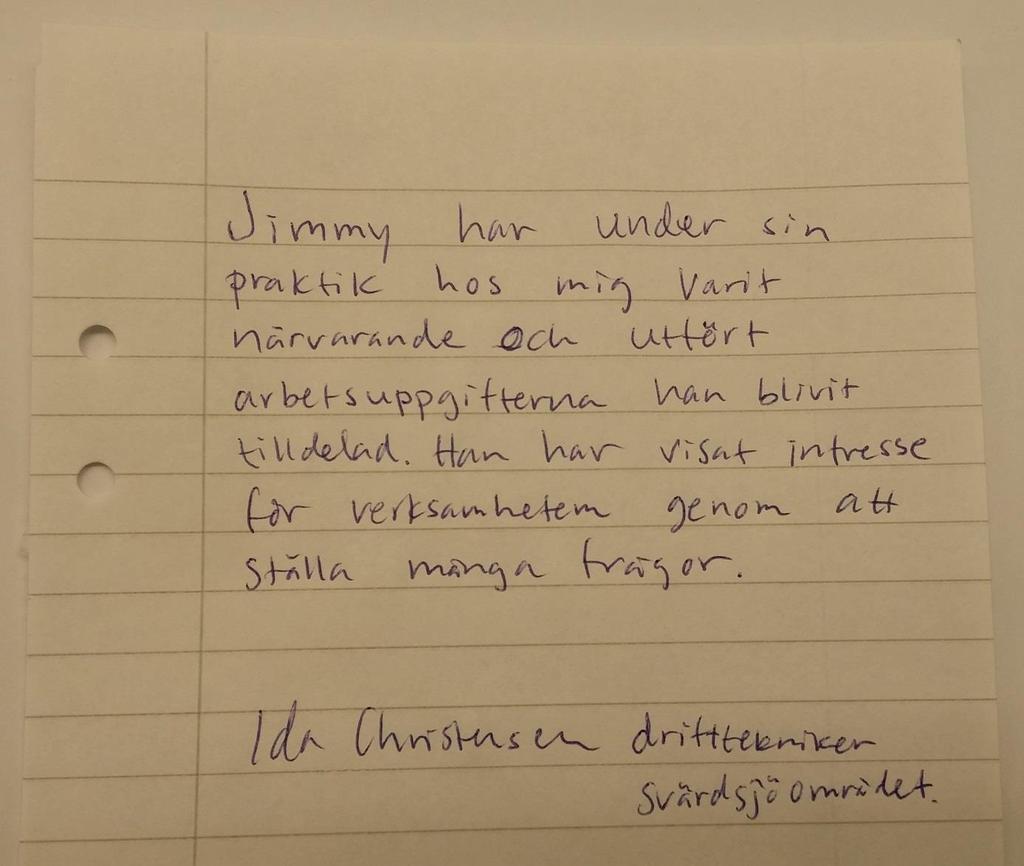 Jimmy har under sin
praktik hos mig varit
närvarande och utfört
arbetsuppgifterna han blivit
tilldelad. Han har visat intresse
för verksamhetem genom att
ställa många frågor.
Ida Christensen drifttekniker
Svärdsjöområdet.